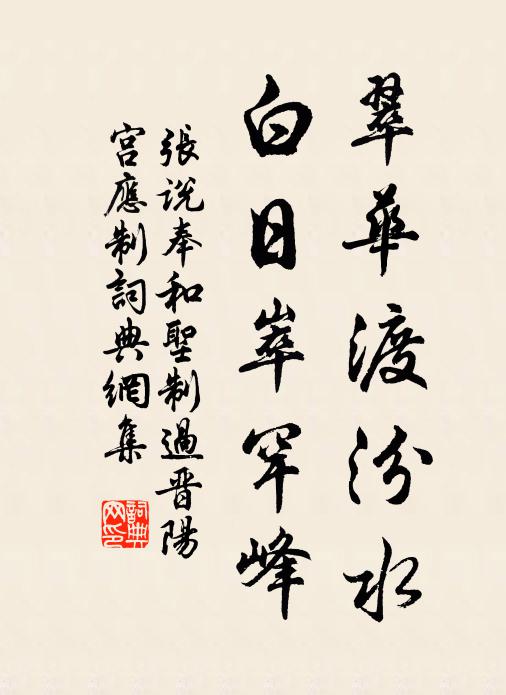 翠華渡汾水
白日崒罕峰
張說奉和聖制過晉陽
宮應制詞典網集
詞典
网印